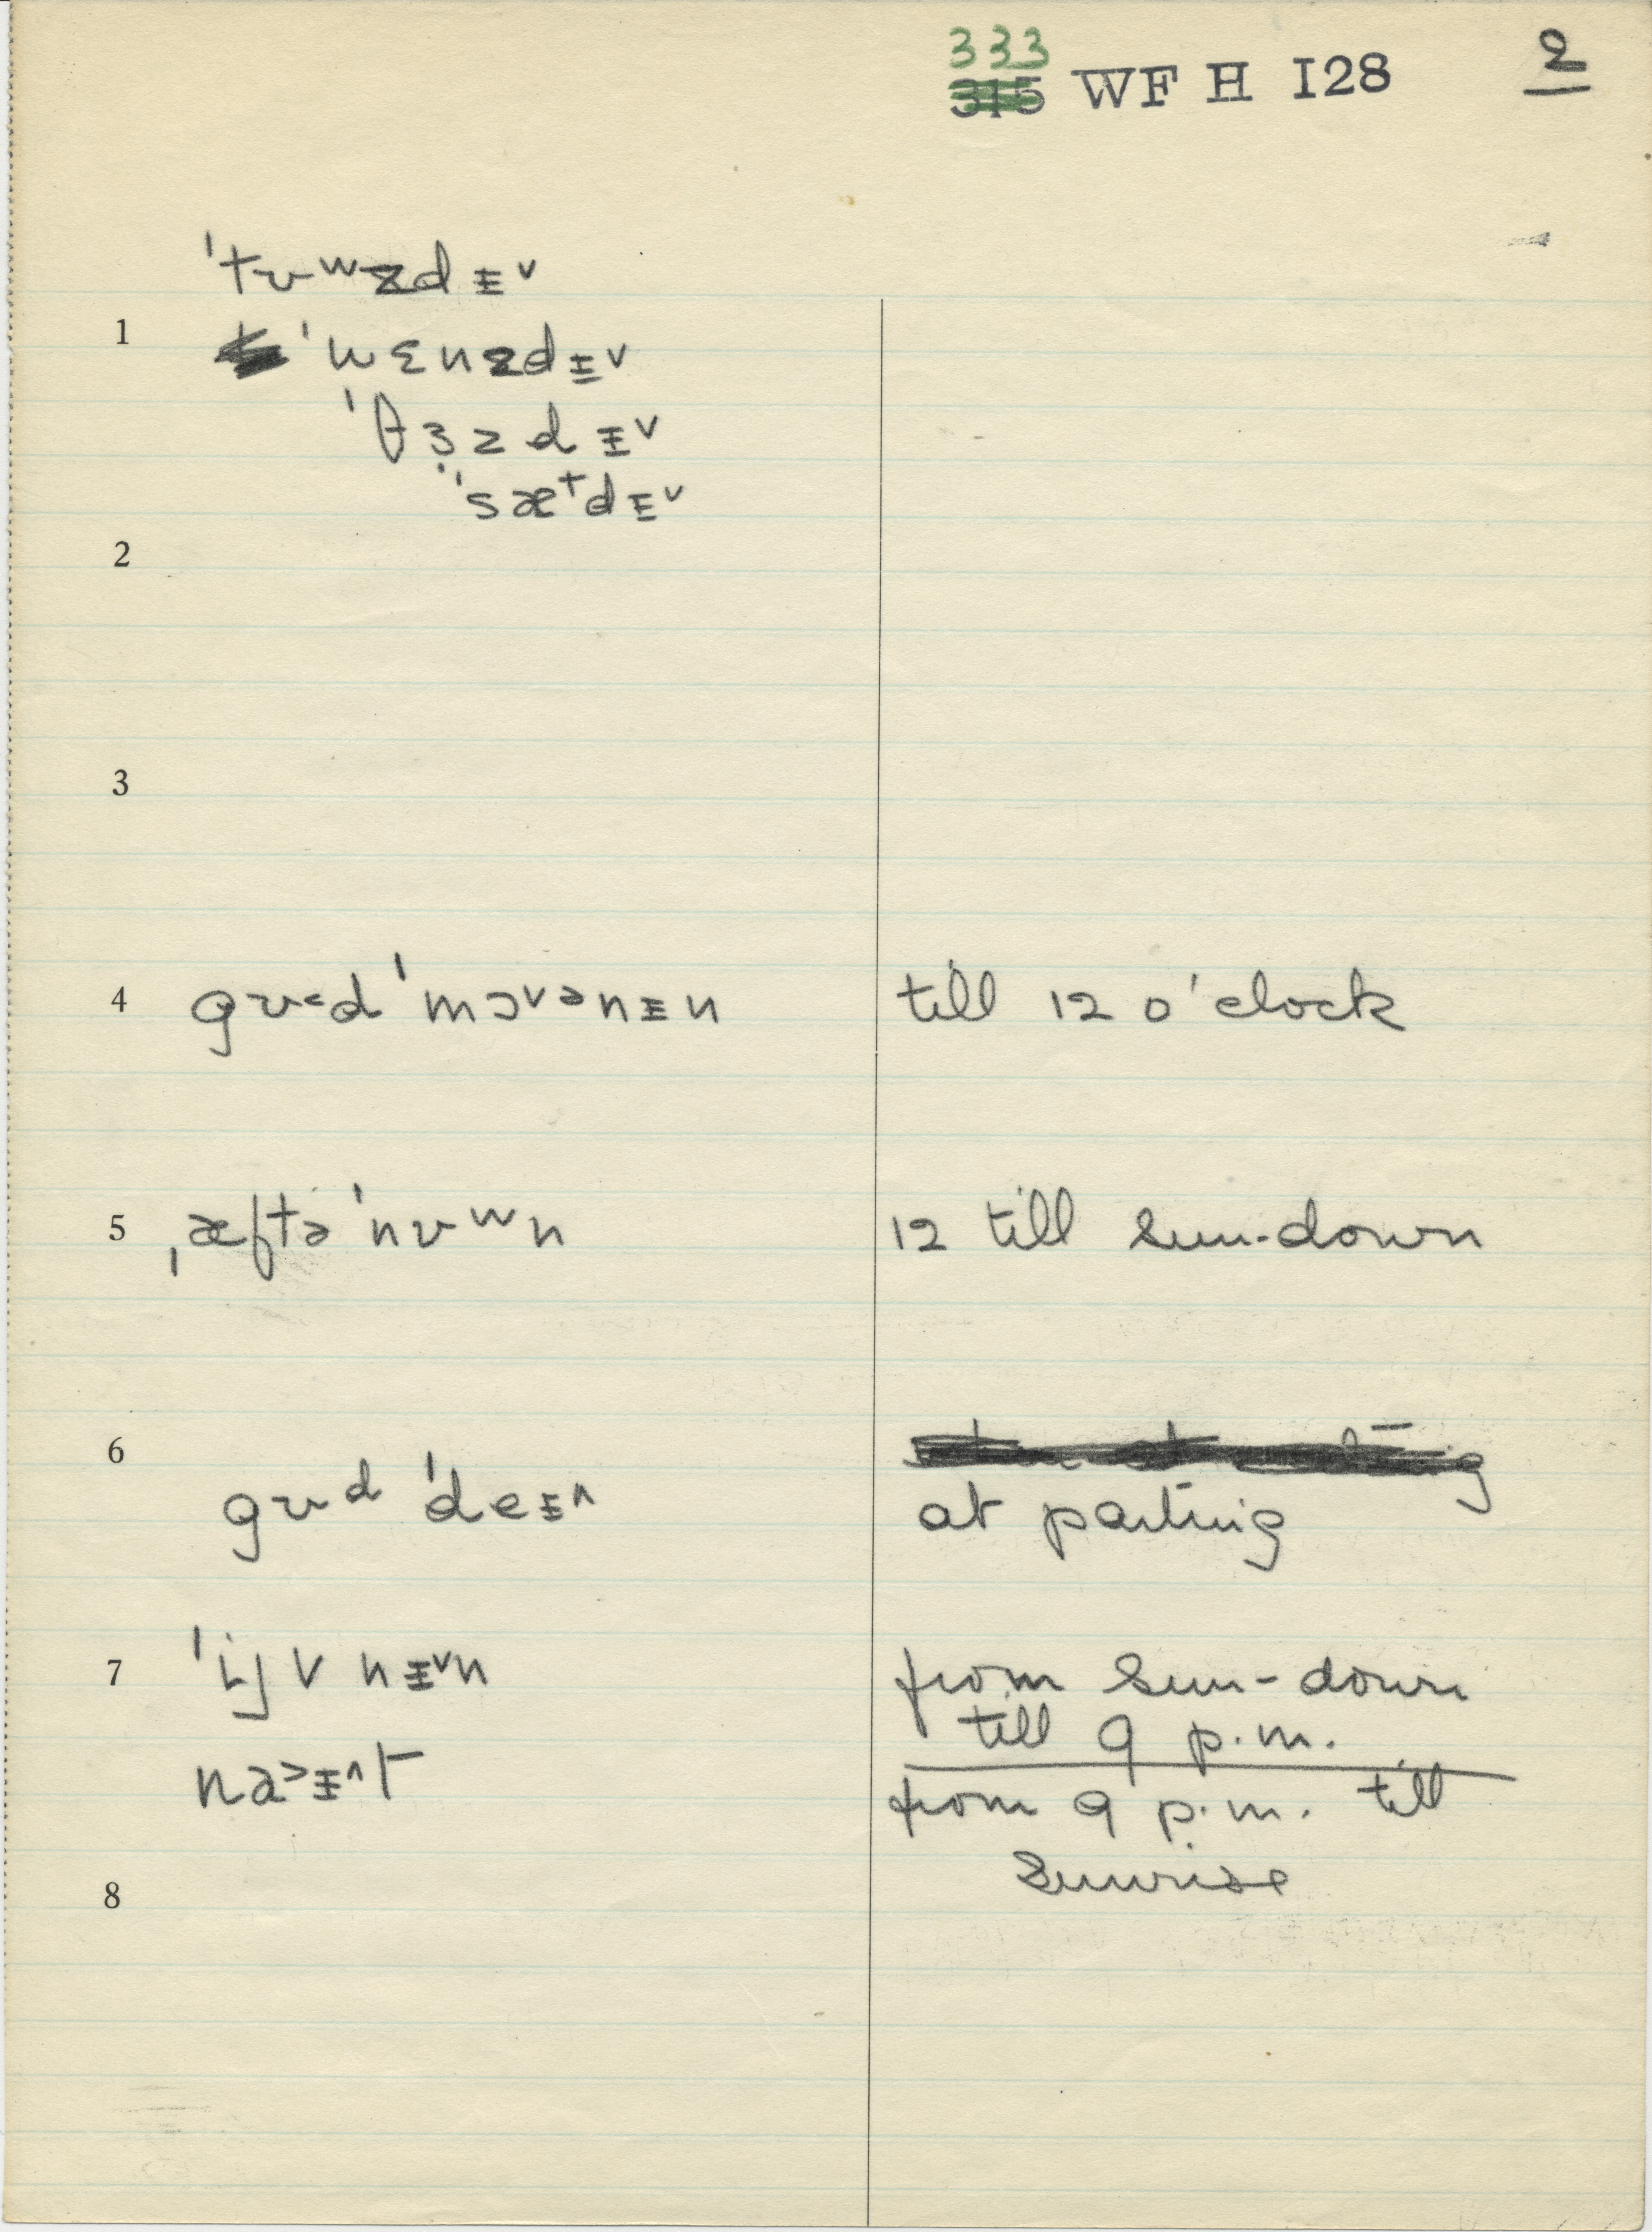 333
315 WF H I28 2
ˈtʊʷzdɪ̵ᵛ
1 ˈwɛnzdɪ̵ᵛ
ˈθɜzdɪ̵ᵛ
ˈsæᵗdɪ̵ᵛ
2
3
4 gʊ˂d ˈmɔᵛᵊnɪ̵n till 12 o'clock
5 ˌæftə ˈnʊʷn 12 till sun-down
6
gʊᵈ ˈdeɪ̵^ at parting
7 ˈij v nɪ̵ᵛn from sun-down
till 9 p.m.
na˃ɪ̵^t from 9 p.m. till
8 sunrise